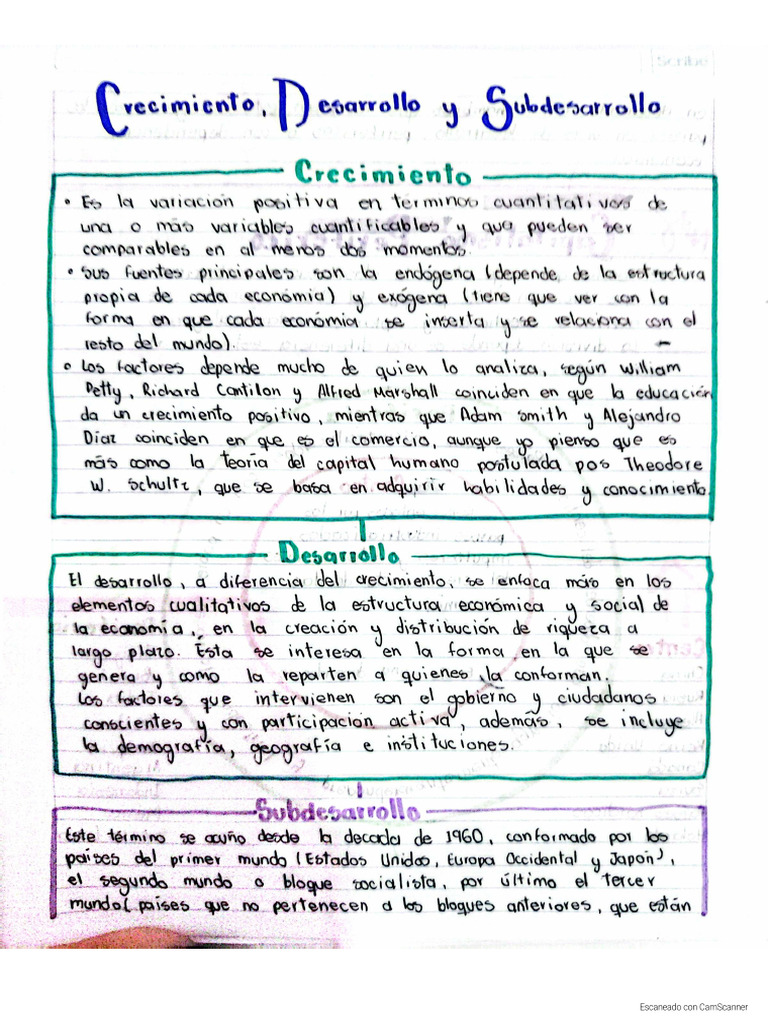 Scribe
Crecimiento, Desarrollo y Subdesarrollo
Crecimiento
• Es la variación positiva en términos cuantitativos de
una o más variables cuantificables y que pueden ser
comparables en al menos dos momentos.
• Sus fuentes principales son la endógena (depende de la estructura
propia de cada económia) y exógena (tiene que ver con la
forma en que cada económia se inserta y se relaciona con el
resto del mundo).
• Los factores depende mucho de quien lo analiza, según William
Petty, Richard Cantilon y Alfred Marshall coinciden en que la educación
da un crecimiento positivo, mientras que Adam Smith y Alejandro
Díaz coinciden en que es el comercio, aunque yo pienso que es
más como la teoría del capital humano postulada pos Theodore
W. Schultz, que se basa en adquirir habilidades y conocimiento.
Desarrollo
El desarrollo, a diferencia del crecimiento, se enfoca más en los
elementos cualitativos de la estructura económica y social de
la economía, en la creación y distribución de riqueza a
largo plazo. Esta se interesa en la forma en la que se
genera y como la reparten a quienes la conforman.
Los factores que intervienen son el gobierno y ciudadanos
conscientes y con participación activa, además, se incluye
la demografía, geografía e instituciones.
Subdesarrollo
Este término se acuño desde la decada de 1960, conformado por los
países del primer mundo (Estados Unidos, Europa Occidental y Japón),
el segundo mundo o bloque socialista, por último el tercer
mundo (países que no pertenecen a los bloques anteriores, que están
Escaneado con CamScanner